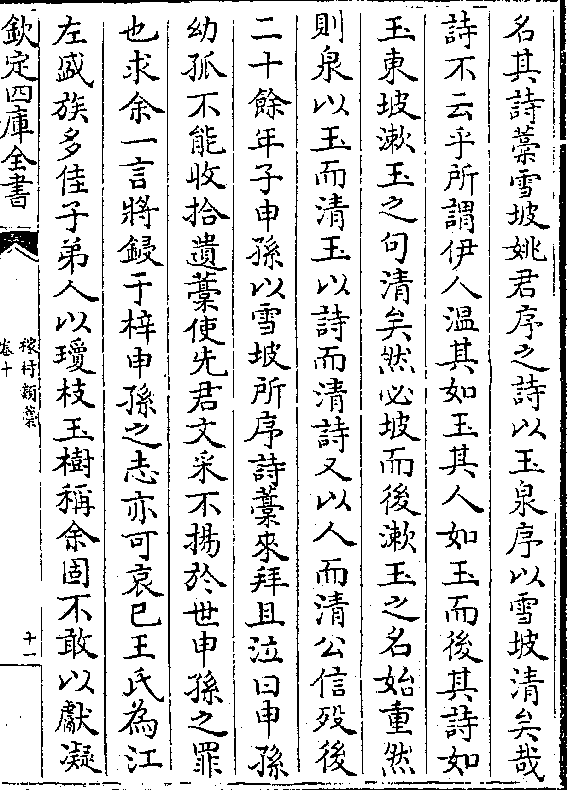 名其詩藁雪坡姚君序之詩以玉泉序以雪坡清矣哉
詩不云乎所謂伊人溫其如玉其人如玉而後其詩如
玉東坡漱玉之句清矣然必坡而後漱玉之名始重然
則泉以玉而清玉以詩而清詩又以人而清公信殁後
二十餘年子申孫以雪坡所序詩藁來拜且泣曰申孫
幼孤不能收拾遺藁使先君文采不揚於世申孫之罪
也求余一言將鋟于梓申孫之志亦可哀已王氏為江
左盛族多佳子弟人以瓊枝玉樹稱余固不敢以獻凝
欽定四庫全書
稼村類藁
卷十
十一